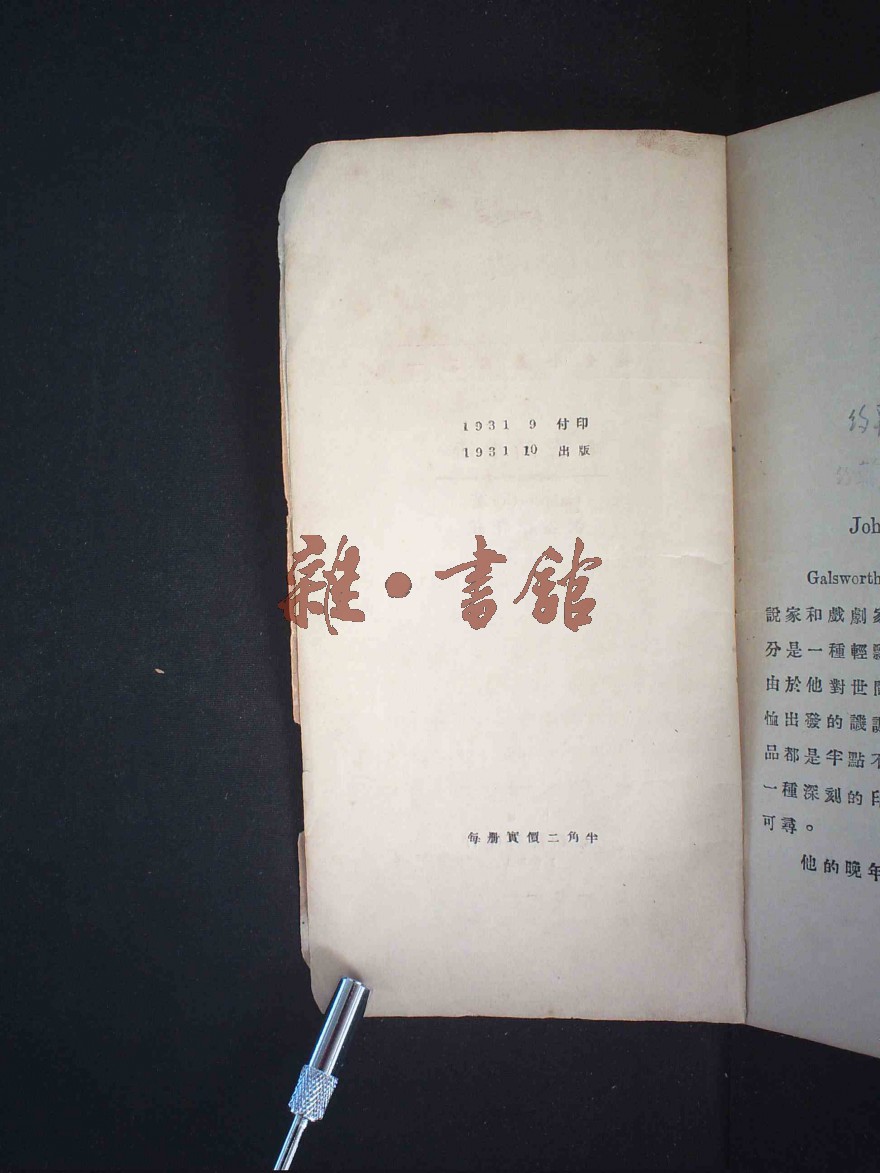 1931 9 付印
1931 10 出版
雜·書館
每册實價二角半
Joh
Galsworth
說家和戲劇家
分是一種輕
由於他對世間
恤出發的譏
品都是半點不
一種深刻的印
可尋。
他的晚年